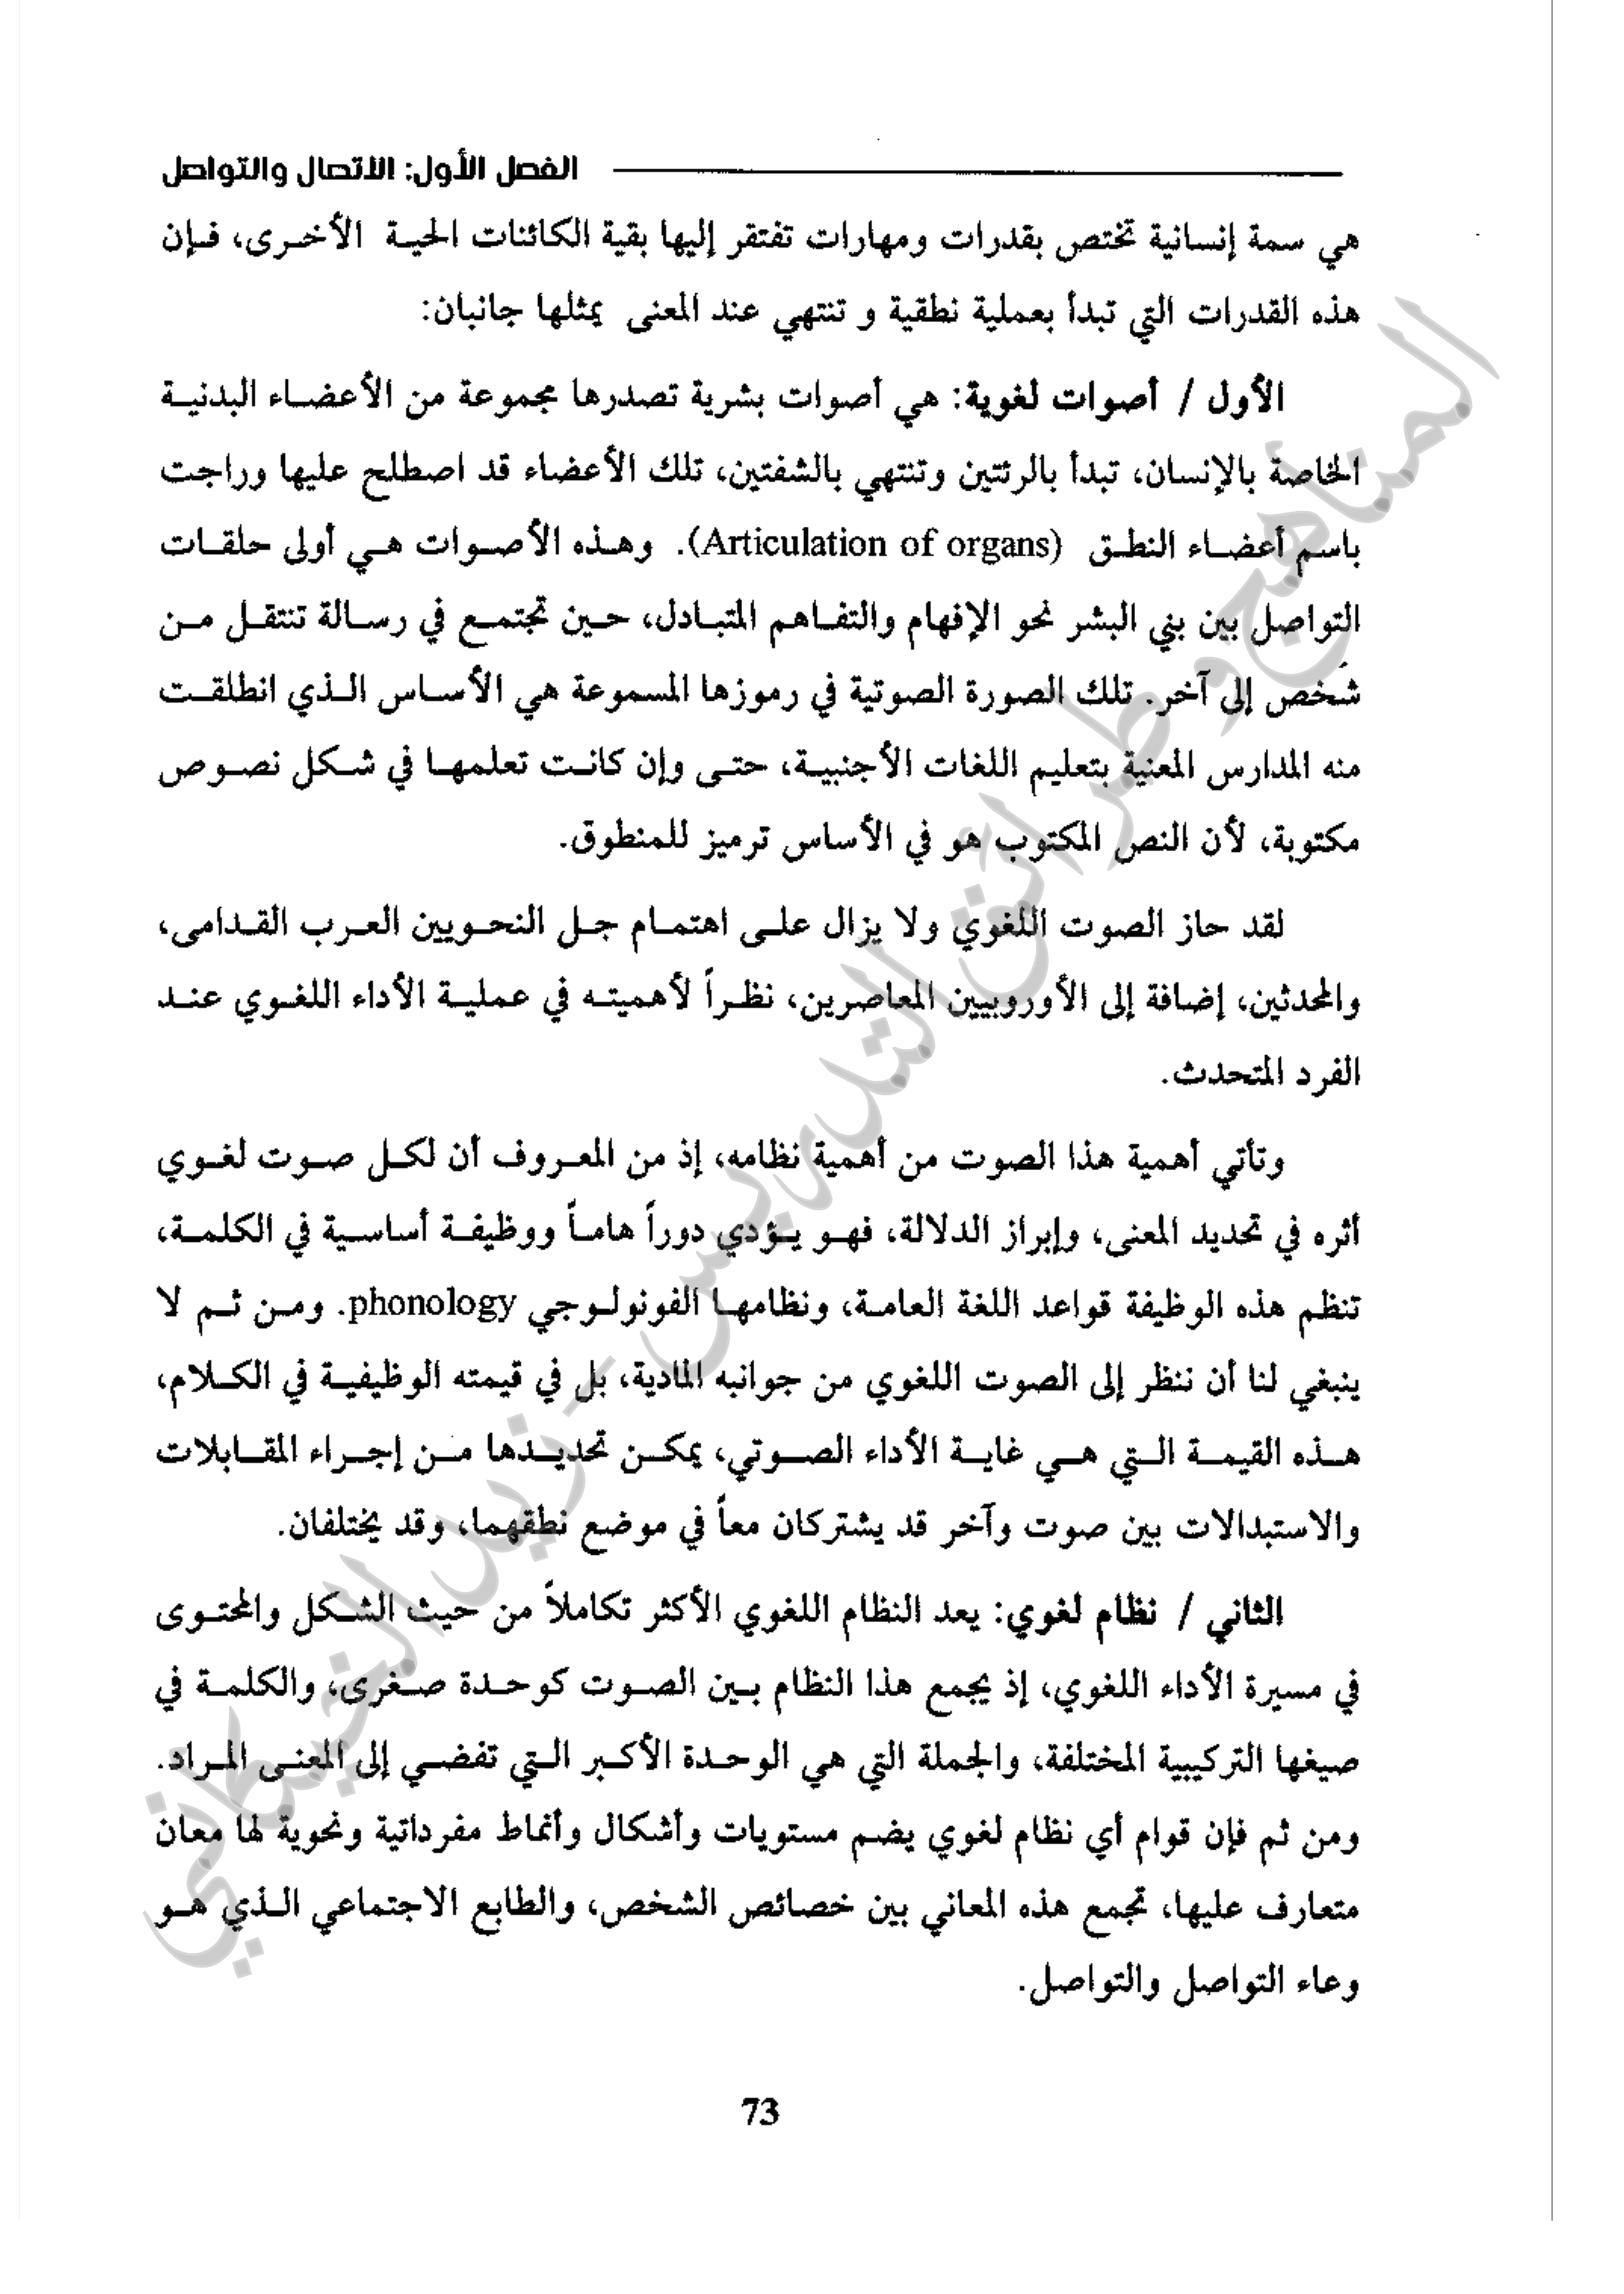 الفصل الأول: الاتصال والتواصل
هي سمة إنسانية تختص بقدرات ومهارات تفتقر إليها بقية الكائنات الحية الأخرى، فإن
هذه القدرات التي تبدأ بعملية نطقية و تنتهي عند المعنى يمثلها جانبان:
الأول / أصوات لغوية: هي أصوات بشرية تصدرها مجموعة من الأعضاء البدنية
الخاصة بالإنسان، تبدأ بالرئتين وتنتهي بالشفتين، تلك الأعضاء قد اصطلح عليها وراجت
باسم أعضاء النطق (Articulation of organs). وهذه الأصوات هي أولى حلقات
التواصل بين بني البشر نحو الإفهام والتفاهم المتبادل، حين تجتمع في رسالة تنتقل من
شخص إلى آخر. تلك الصورة الصوتية في رموزها المسموعة هي الأساس الذي انطلقت
منه المدارس المعنية بتعليم اللغات الأجنبية، حتى وإن كانت تعلمها في شكل نصوص
مكتوبة، لأن النص المكتوب هو في الأساس ترميز للمنطوق.
لقد حاز الصوت اللغوي ولا يزال على اهتمام جل النحويين العرب القدامى،
والمحدثين، إضافة إلى الأوروبيين المعاصرين، نظراً لأهميته في عملية الأداء اللغوي عند
الفرد المتحدث.
وتأتي أهمية هذا الصوت من أهمية نظامه، إذ من المعروف أن لكل صوت لغوي
أثره في تحديد المعنى، وإبراز الدلالة، فهو يؤدي دوراً هاماً ووظيفة أساسية في الكلمة،
تنظم هذه الوظيفة قواعد اللغة العامة، ونظامها الفونولوجي phonology. ومن ثم لا
ينبغي لنا أن ننظر إلى الصوت اللغوي من جوانبه المادية، بل في قيمته الوظيفية في الكلام،
هذه القيمة التي هي غاية الأداء الصوتي، يمكن تحديدها من إجراء المقابلات
والاستبدالات بين صوت وآخر قد يشتركان معاً في موضع نطقهما، وقد يختلفان.
الثاني / نظام لغوي: يعد النظام اللغوي الأكثر تكاملاً من حيث الشكل والمحتوى
في مسيرة الأداء اللغوي، إذ يجمع هذا النظام بين الصوت كوحدة صغرى، والكلمة في
صيغها التركيبية المختلفة، والجملة التي هي الوحدة الأكبر التي تفضي إلى المعنى المراد.
ومن ثم فإن قوام أي نظام لغوي يضم مستويات وأشكال وأنماط مفرداتية ونحوية لها معان
متعارف عليها، تجمع هذه المعاني بين خصائص الشخص، والطابع الاجتماعي الذي هو
وعاء التواصل والتواصل.
73
المناهج وطرائق التدريس - زيد الخيكاني